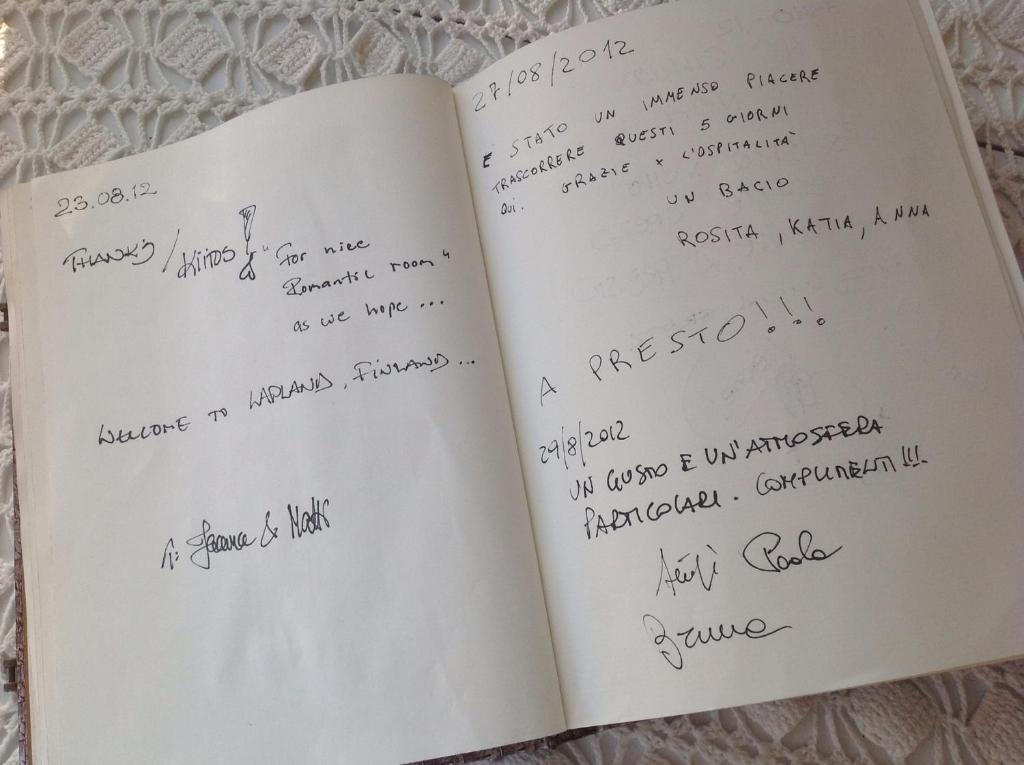 23.08.12
THANKS / KIITOS! "For nice
Romantic room"
as we hope ...
WELCOME TO LAPLAND, FINLAND ...
T: &
27/08/2012
E' STATO UN IMMENSO PIACERE
TRASCORRERE QUESTI 5 GIORNI
QUI. GRAZIE x L'OSPITALITÀ
UN BACIO
ROSITA, KATIA, ANNA
A PRESTO!!!
29/8/2012
UN GUSTO E UN'ATMOSFERA
PARTICOLARI. COMPLIMENTI!!!
Paola
Bruno